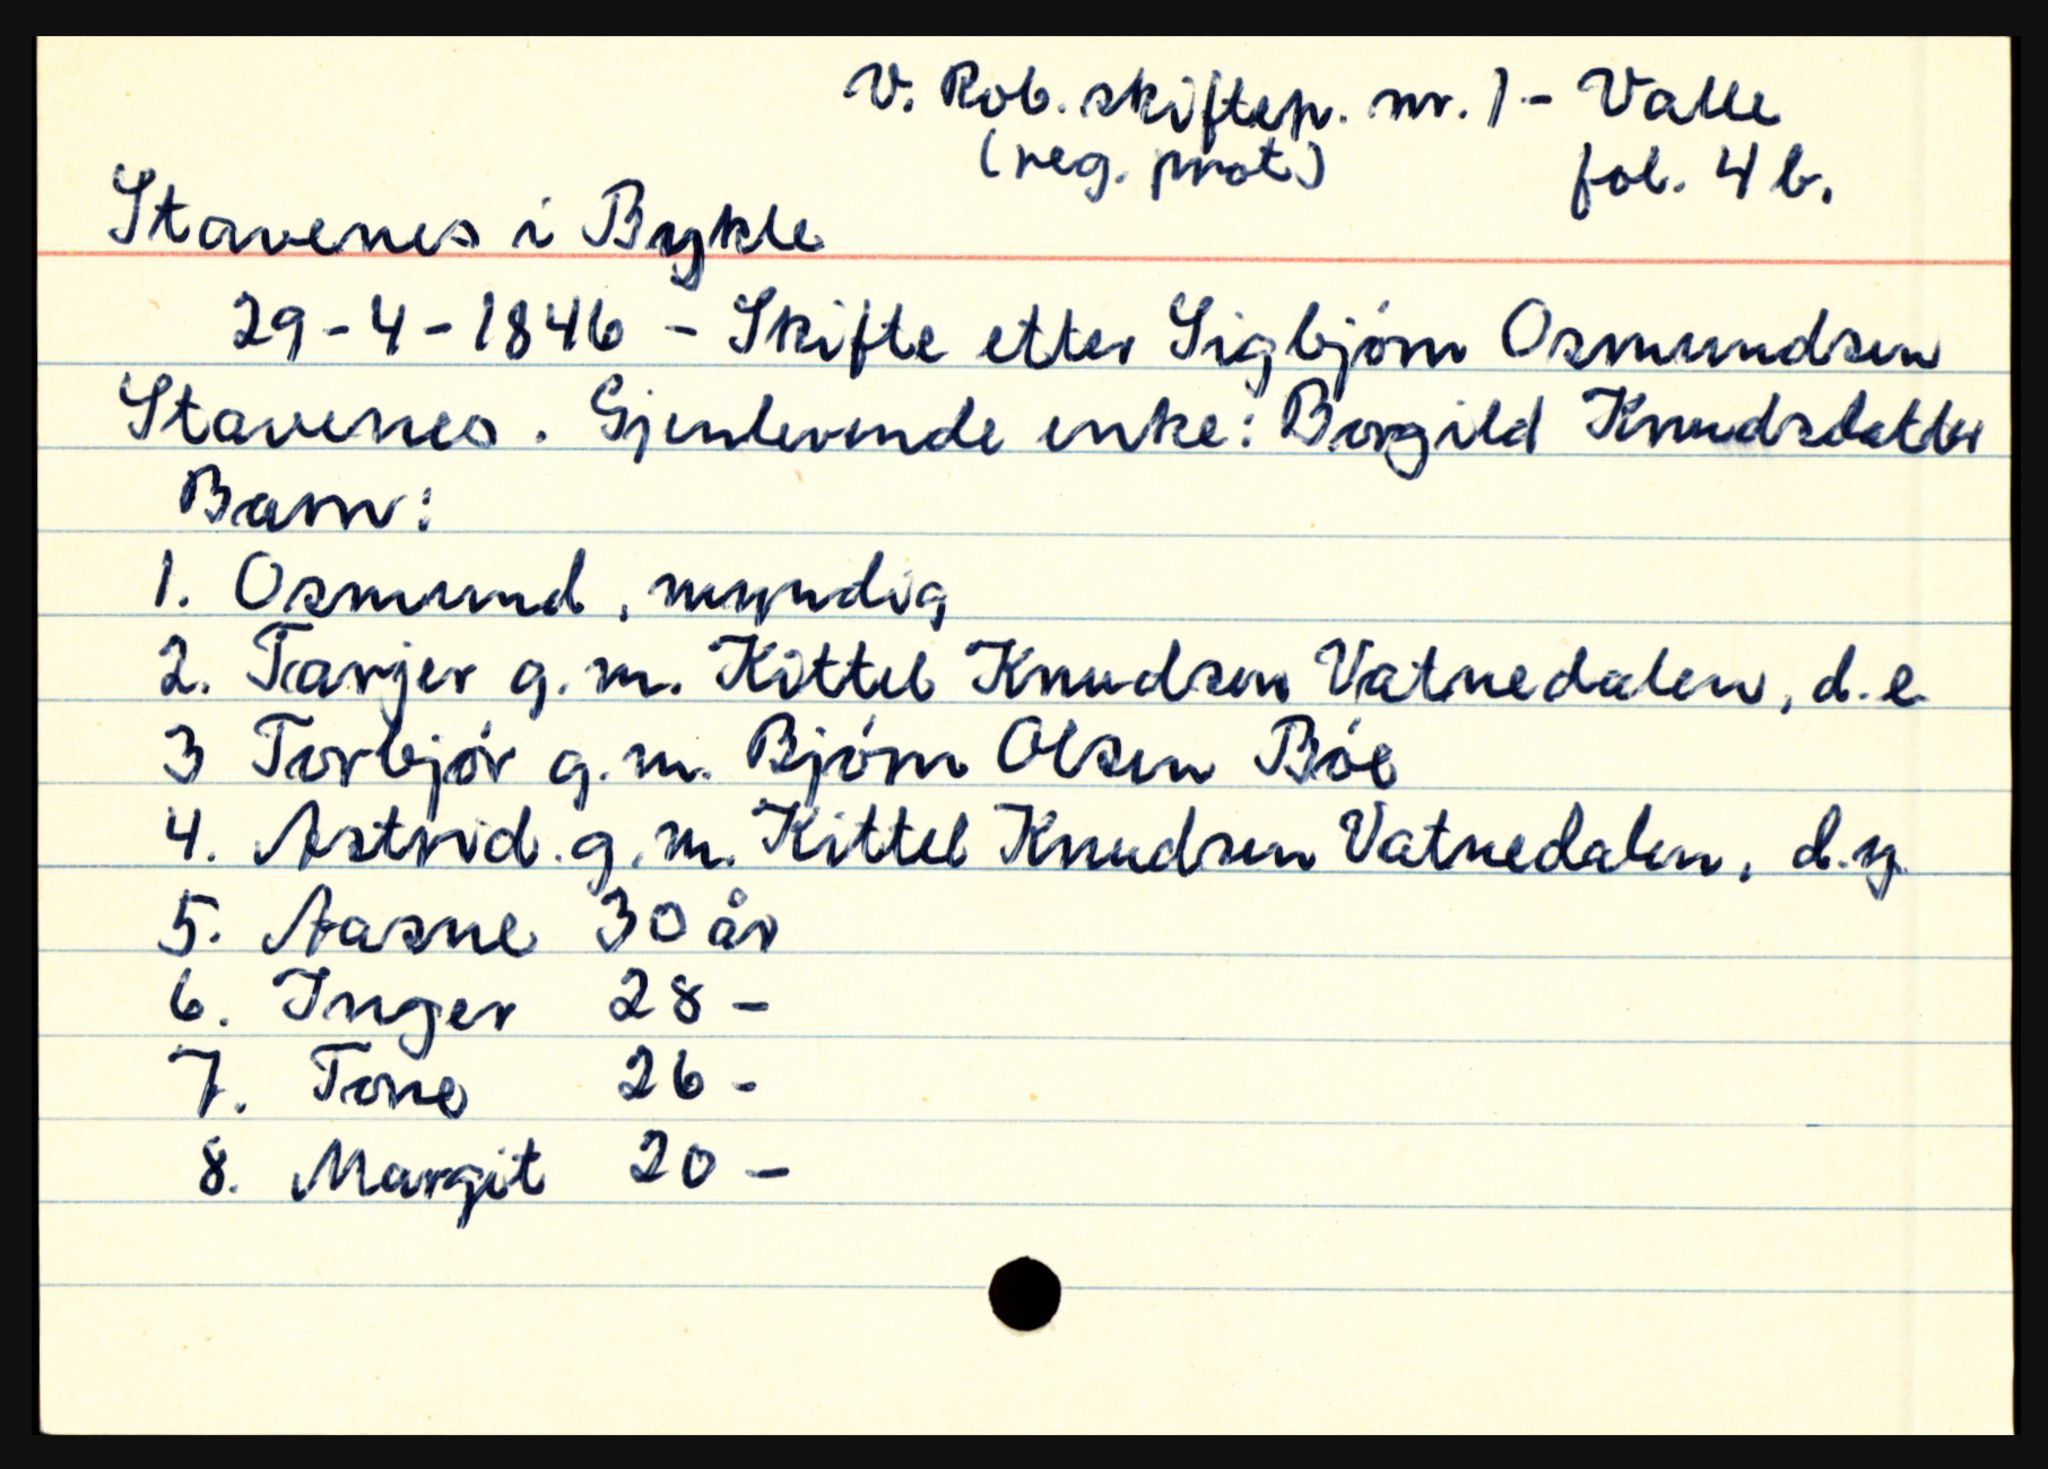 V. Rob. skiftep. nr. 1 - Valle
(reg. prot) fol. 4 b.
Stavenes i Bykle
29-4-1846 - Skifte etter Sigbjørn Osmundsen
Stavenes. Gjenlevende enke: Borgild Knudsdatter
Barn:
1. Osmund, myndig
2. Tarjer g. m. Kittel Knudsen Vatnedalen, d. e.
3 Torbjør g. m. Bjørn Olsen Bøe
4. Astrid. g. m. Kittel Knudsen Vatnedalen, d. y.
5. Aasne 30 år
6. Inger 28 -
7. Tone 26 -
8. Margit 20 -